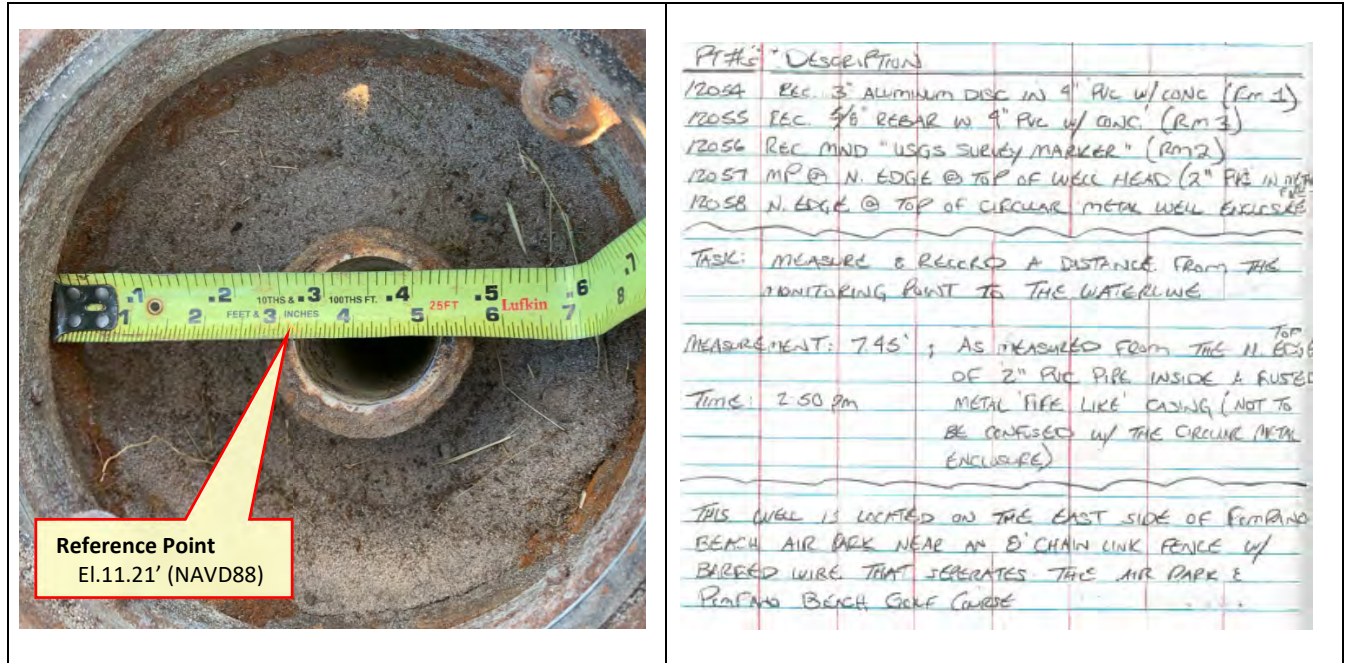 .1 .2 10THS & .3 100THS FT. .4 25FT .5 Lufkin .6 .7
1 2 FEET & 3 INCHES 4 5 6 7 8
Reference Point
El.11.21’ (NAVD88)
PT #'s DESCRIPTION
12054 REC. 3" ALUMINUM DISC IN 4" PVC W/ CONC (RM 1)
12055 REC. 5/8" REBAR IN 4" PVC W/ CONC. (RM 3)
12056 REC MND "USGS SURVEY MARKER" (RM 2)
12057 MP @ N. EDGE @ TOP OF WELL HEAD (2" PVC IN METAL
12058 N. EDGE @ TOP OF CIRCULAR METAL WELL ENCLOSURE
TASK: MEASURE & RECORD A DISTANCE FROM THE
MONITORING POINT TO THE WATERLINE
MEASUREMENT: 7.45' ; AS MEASURED FROM THE N. TOP EDGE
OF 2" PVC PIPE INSIDE A RUSTED
TIME: 2:50 pm METAL 'PIPE LIKE' CASING (NOT TO
BE CONFUSED W/ THE CIRCULAR METAL
ENCLOSURE)
THIS WELL IS LOCATED ON THE EAST SIDE OF POMPANO
BEACH AIR PARK NEAR AN 8' CHAIN LINK FENCE W/
BARBED WIRE THAT SEPERATES THE AIR PARK &
POMPANO BEACH GOLF COURSE